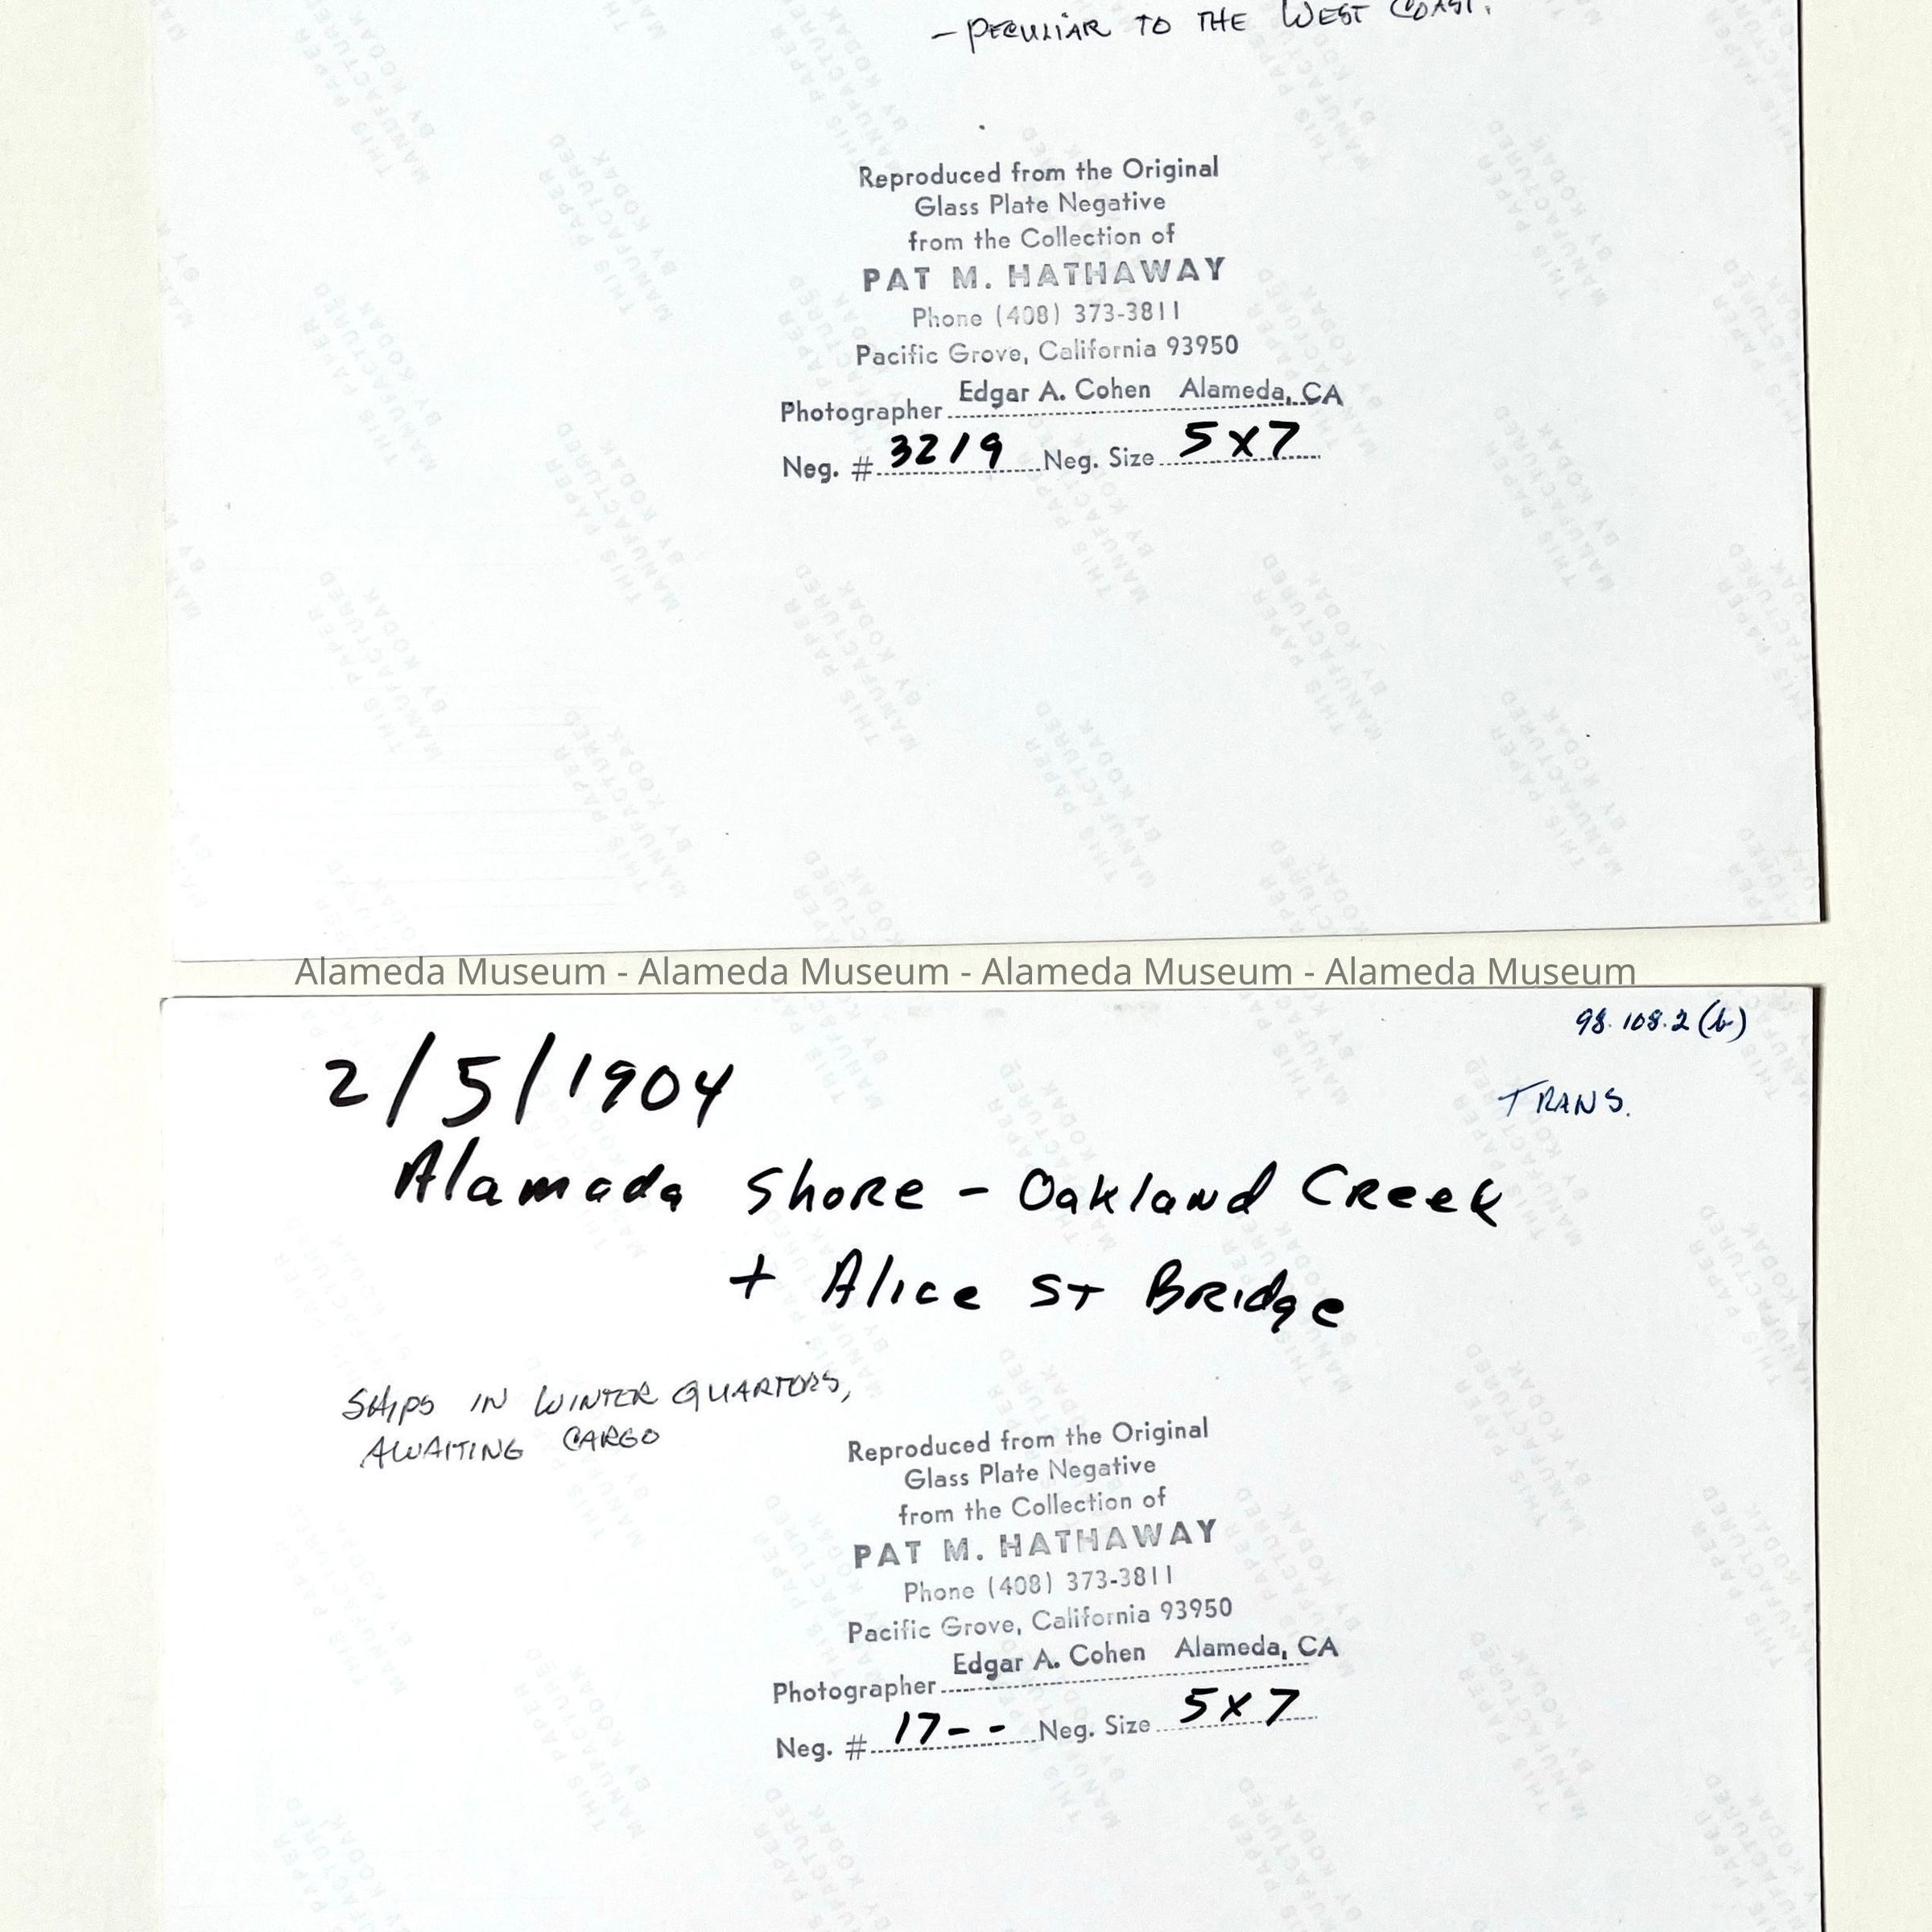 - PECULIAR TO THE WEST COAST.
Reproduced from the Original
Glass Plate Negative
from the Collection of
PAT M. HATHAWAY
Phone (408) 373-3811
Pacific Grove, California 93950
Photographer Edgar A. Cohen Alameda, CA
Neg. # 3219 Neg. Size 5X7
Alameda Museum - Alameda Museum - Alameda Museum - Alameda Museum
98.108.2 (b)
2/5/1904
TRANS.
Alamada Shore - Oakland Creek
+ Alice ST Bridge
SHIPS IN WINTER QUARTERS,
AWAITING CARGO
Reproduced from the Original
Glass Plate Negative
from the Collection of
PAT M. HATHAWAY
Phone (408) 373-3811
Pacific Grove, California 93950
Photographer Edgar A. Cohen Alameda, CA
Neg. # 17-- Neg. Size 5X7
THIS PAPER
MANUFACTURED
BY KODAK